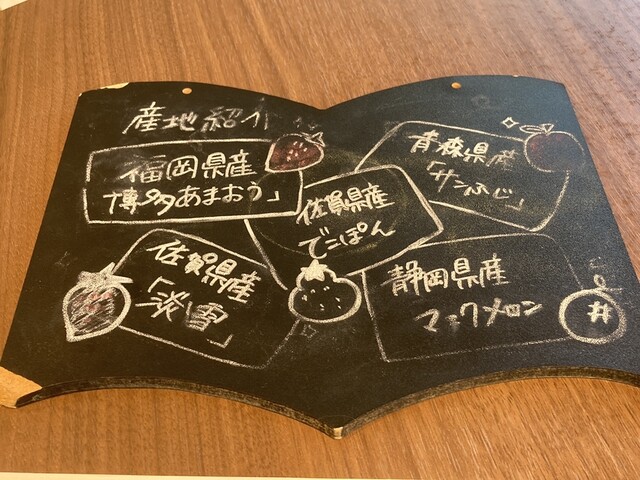 産地紹介
福岡県産
博多あまおう」
青森県産
「サンふじ」
佐賀県産
でこぽん
佐賀県産
「淡雪」
静岡県産
マスクメロン